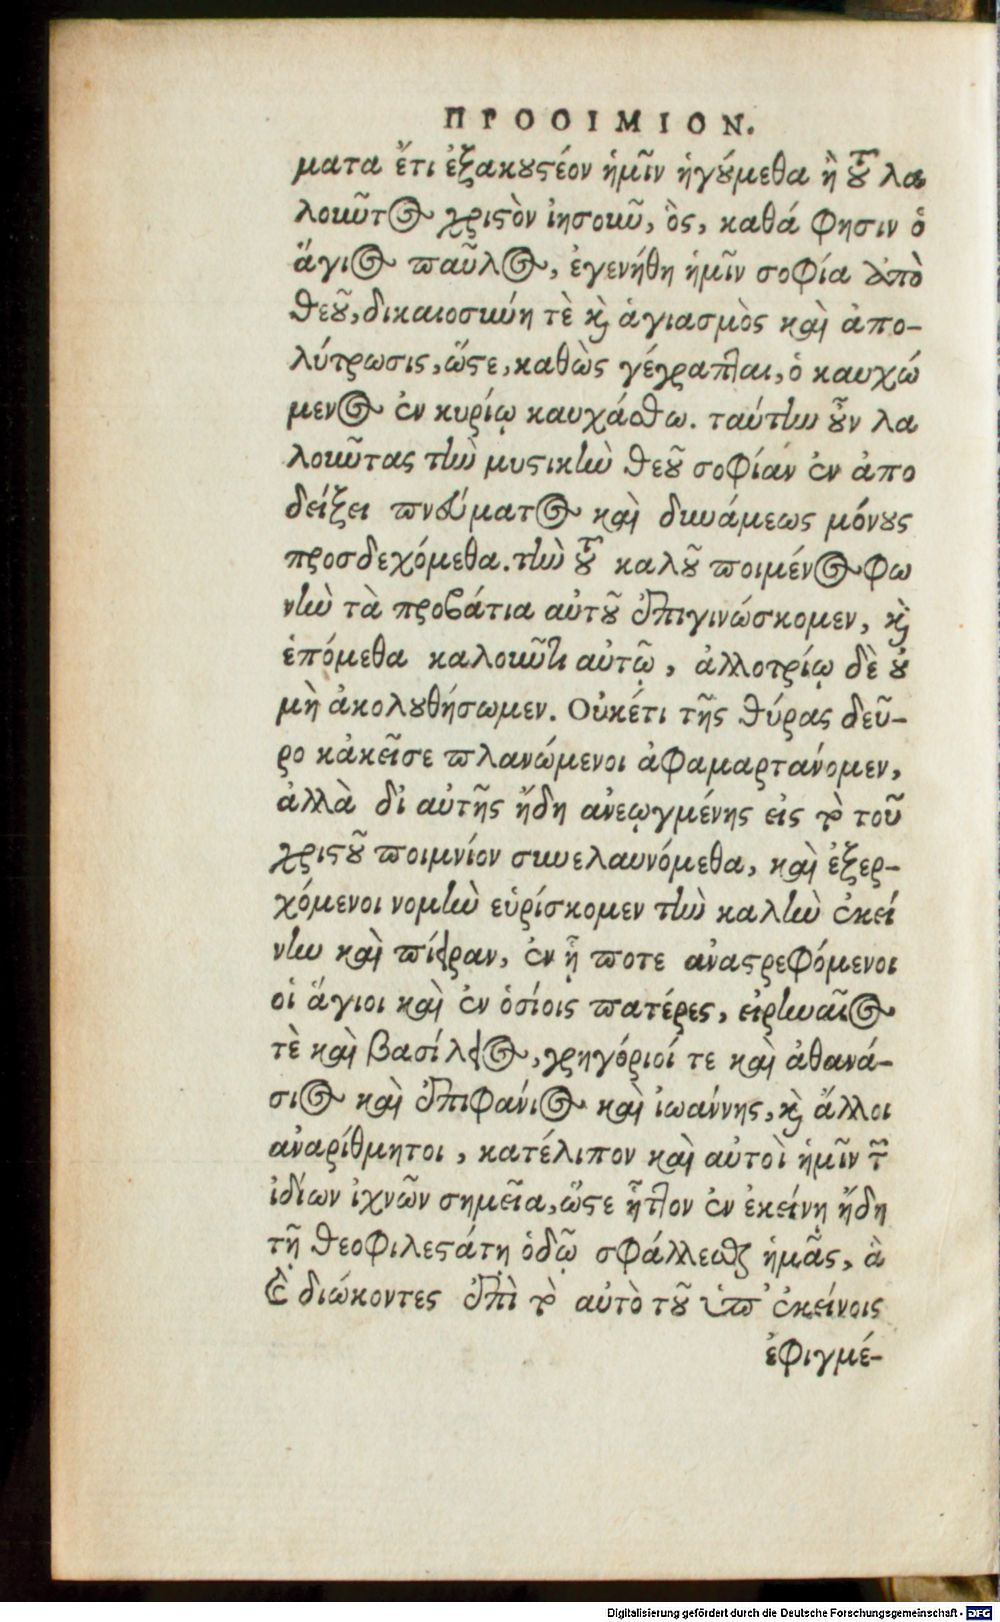 ΠΡΟΟΙΜΙΟΝ.
ματα ἔτι ἐξακουστέον ἡμῖν ἡγούμεθα ἢ τοῦ λα
λοιωῦτος χριστὸν ἰησοιωῦ, ὃς, καθά φησιν ὁ
ἅγιος παῦλος, ἐγενήθη ἡμῖν σοφία ἀπὸ
θεοῦ, δικαιοσιωύη τὲ καὶ ἁγιασμὸς καὶ ἀπο-
λύτρωσις, ὥστε, καθὼς γέγραπται, ὁ καυχώ
μενος ἐν κυρίῳ καυχάσθω. ταύτην οὖν λα
λοιωῦτας τὴν μυστικὴν θεοῦ σοφίαν ἐν ἀπο
δείξει πνεύματος καὶ διωάμεως μόνους
προσδεχόμεθα. τὴν τοῦ καλοῦ ποιμένος φω
νὴν τὰ προβάτια αὐτοῦ ἐπιγινώσκομεν, καὶ
ἑπόμεθα καλοιωῦτι αὐτῷ, ἀλλοτρίῳ δὲ οὐ
μὴ ἀκολουθήσωμεν. Οὐκέτι τῆς θύρας δεῦ-
ρο κἀκεῖσε πλανώμενοι ἀφαμαρτανόμεν,
ἀλλὰ δι αὐτῆς ἤδη ἀνεῳγμένης εἰς τὸ τοῦ
χριστοῦ ποιμνίον σιωελαυνόμεθα, καὶ ἐξερ-
χόμενοι νομὴν εὑρίσκομεν τὴν καλὴν ἐκεί
νην καὶ πίειραν, ἐν ᾗ ποτε ἀναστρεφόμενοι
οἱ ἅγιοι καὶ ἐν ὁσίοις πατέρες, εἰρηναῖος
τὲ καὶ βασίλειος, γρηγόριοί τε καὶ ἀθανά-
σιος καὶ ἐπιφάνιος καὶ ἰωάννης, καὶ ἄλλοι
ἀναρίθμητοι, κατέλιπον καὶ αὐτοὶ ἡμῖν τῶν
ἰδίων ἰχνῶν σημεῖα, ὥστε ἧττον ἐν ἐκείνῃ ἤδη
τῇ θεοφιλεστάτῃ ὁδῷ σφάλλεσθαι ἡμᾶς, ἃ
διώκοντες ἐπὶ τὸ αὐτὸ τοῦ ὑπ' ἐκείνοις
ἐφιγμέ-
Digitalisierung gefördert durch die Deutsche Forschungsgemeinschaft - DFG